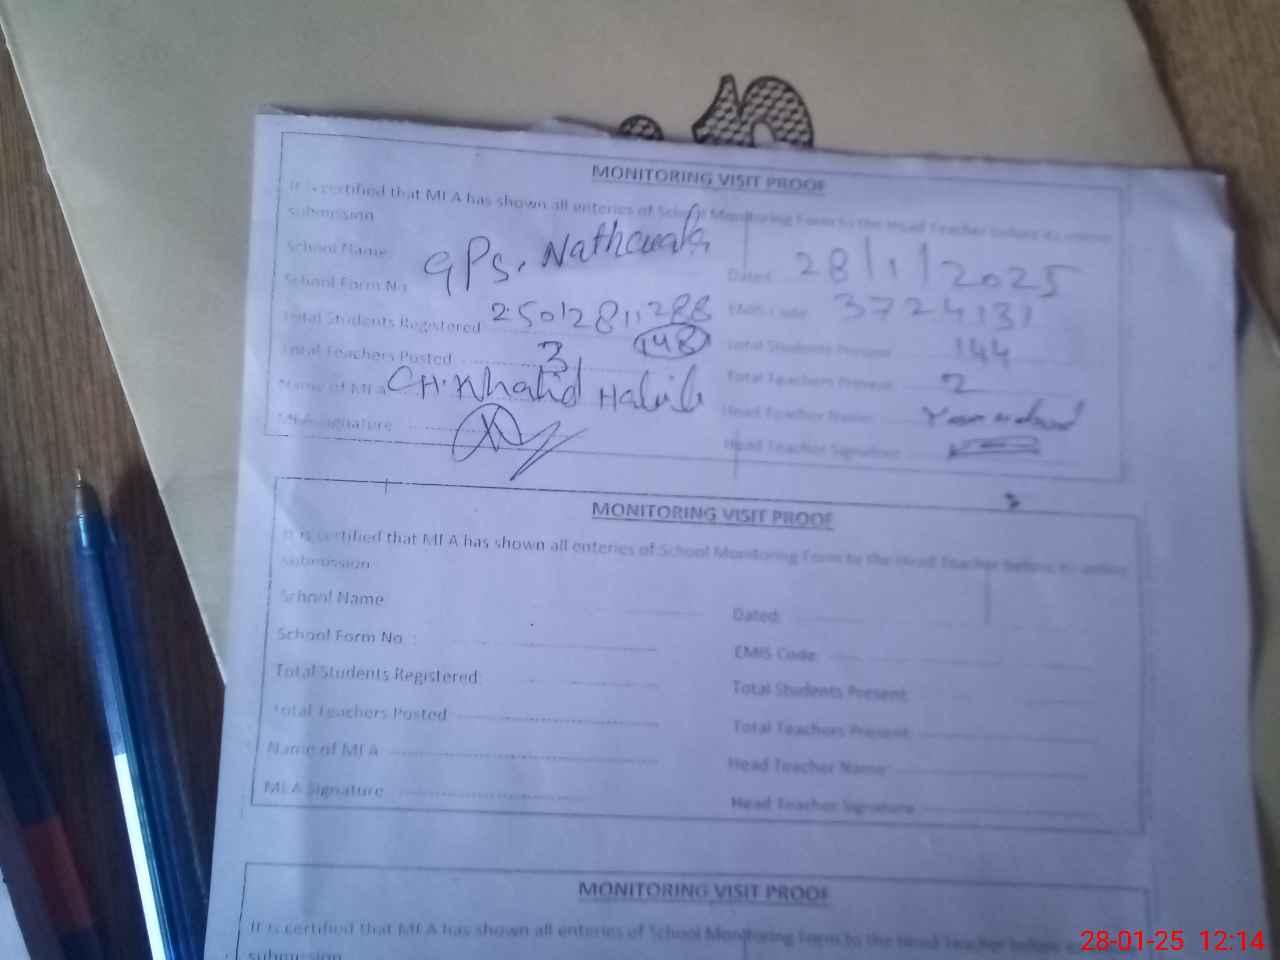 MONITORING VISIT PROOF
It is certified that MEA has shown all enteries of School Monitoring Form to the Head Teacher before its online
submission
School Name GPS. Nathuwala Dated: 28/1/2025
School Form No 2501281288 EMIS Code: 3724131
Total Students Registered 148 Total Students Present 144
Total Teachers Posted 3 Total Teachers Present 2
Name of MEA CH. Khalid Habib Head Teacher Name:
MEA Signature Head Teacher Signature
MONITORING VISIT PROOF
It is certified that MEA has shown all enteries of School Monitoring Form to the Head Teacher before its online
submission
School Name Dated:
School Form No : EMIS Code:
Total Students Registered Total Students Present
Total Teachers Posted Total Teachers Present:
Name of MEA Head Teacher Name:
MEA Signature Head Teacher Signature
MONITORING VISIT PROOF
It is certified that MEA has shown all enteries of School Monitoring Form to the Head Teacher before
submission
28-01-25 12:14